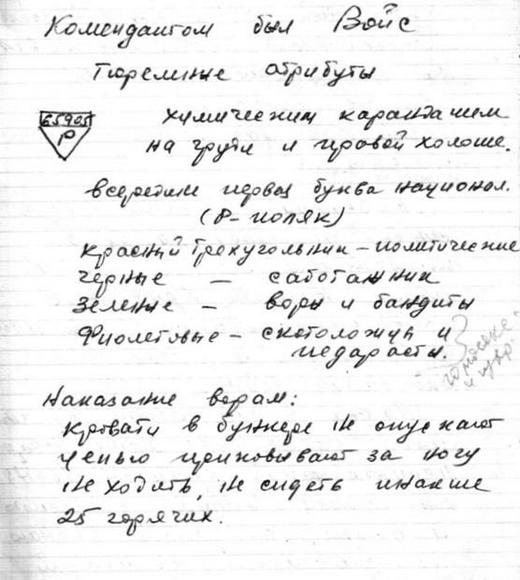 Комендантом был Войс
Тюремные атрибуты
65905
P
химическим карандашом
на груди и правой холоше.
в середине первая буква национ.
(P-поляк)
красный Треугольник – политические
черные – саботажник
Зеленые – воры и бандиты
Фиолетовые – скотоложцы и
педарасты.
Наказание ворам:
кровати в бункере не опускают
цепью приковывают за ногу
не ходить, не сидеть иначе
25 горячих.